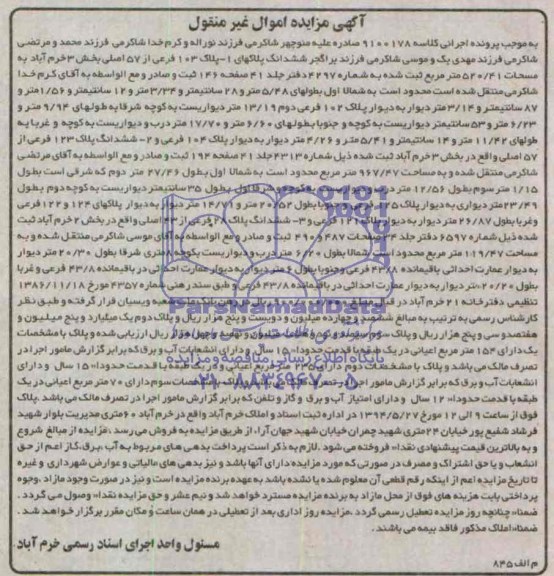 آگهی مزایده اموال غیر منقول
به موجب پرونده اجرائی کلاسه ۹۱۰۰۱۷۸ صادره علیه منوچهر شاکرمی فرزند نوراله و کرم خدا شاکرمی فرزند محمد و مرتضی
شاکرمی فرزند مهدی بک و موسی شاکرمی فرزند براگجر ششدانگ پلاکهای ۱-پلاک ۱۰۳ فرعی از ۵۷ اصلی بخش ۳ خرم آباد به
مسحات ۵۲۰/۴۱ متر مربع ثبت شده به شماره ۴۲۹۷ دفتر جلد ۴۱ صفحه ۱۴۶ ثبت و صادر و مع الواسطه به آقای کرم خدا
شاکرمی منتقل شده است محدود است به شمالا اول بطولهای ۵/۴۸ متر و ۲۸ سانتیمتر و ۳/۳۴ متر و ۱۲ سانتیمتر و ۱/۵۶ متر و
۸۷ سانتیمتر و ۳/۱۴ متر دیوار به دیوار پلاک ۱۰۲ فرعی دوم ۱۳/۱۹ متر دیواریست به کوچه شرقا به طولهای ۹/۹۴ متر و
۶/۲۳ متر و ۵۳ سانتیمتر دیواریست به کوچه و جنوبا بطولهای ۶/۶۰ متر و ۱۷/۷۰ متر درب و دیواریست به کوچه و غربا به
طولهای ۱۱/۴۲ متر و ۱۴ سانتیمتر و ۵/۴۱ متر و ۴/۲۶ متر دیوار به دیوار پلاک ۱۰۴ فرعی و ۲- ششدانگ پلاک ۱۲۳ فرعی از
۵۷ اصلی واقع در بخش ۳ خرم آباد ثبت شده ذیل شماره ۴۳۱۳ جلد ۴۱ صفحه ۱۹۴ ثبت و صادر و مع الواسطه به آقای مرتضی
شاکرمی منتقل شده و به مساحت ۹۶۷/۴۷ متر مربع محدود است به شمالا اول بطول ۲۷/۴۶ متر دوم که شرقی است بطول
۱/۱۵ متر سوم بطول ۱۲/۵۶ متر دیواریست به کوچه شرقا اول بطول ۳۵ سانتیمتر دیواریست به کوچه دوم بطول
۲۳/۴۹ متر دیواری به دیوار پلاک ۱۲۵ فرعی جنوبا بطول ۲۰/۵۲ متر و ۱۴/۷۷ متر دیوار به دیوار پلاکهای ۱۲۴ و ۱۲۲ فرعی
و غربا بطول ۲۶/۸۷ متر دیوار به دیوار پلاک ۱۲۱ فرعی و ۳- ششدانگ پلاک ۲۸ فرعی از ۴۳ اصلی واقع در بخش ۲ خرم آباد ثبت
شده ذیل شماره ۶۵۹۷ دفتر جلد ۳۴ صفحات ۴۸۷ و ۴۹۰ ثبت و صادر و مع الواسطه به آقای موسی شاکرمی منتقل شده و به
مساحت ۱۱۹/۴۷ متر مربع محدود است شمالا بطول ۶/۲۰ متر درب و دیواریست بکوچه ۸ متری شرقا بطول ۲۰/۳۰ متر دیوار
به دیوار عمارت احداثی باقیمانده ۴۳/۸ فرعی و جنوبا بطول ۶ متر دیوار به دیوار عمارت احداثی در باقیمانده ۴۳/۸ فرعی و غربا
بطول ۲۰/۲۰ متر دیوار به دیوار عمارت احداثی در باقیمانده ۴۳/۸ فرعی و طبق سند رهنی شماره ۴۳۵۷ مورخ ۱۳۸۶/۱۱/۱۸
تنظیمی دفترخانه ۲۱ خرم آباد در قبال مبلغ ریال در رهن بانک ملی شعبه ویسیان قرار گرفته و طبق نظر
کارشناس رسمی به ترتیب به مبالغ ششصد و چهارده میلیون و دویست و پنج هزار ریال و پلاک دوم یک میلیارد و پنج میلیون و
هفتصد و سی و پنج هزار ریال و پلاک سوم سیصد و نود و هفت میلیون و نهصد و چهل هزار ریال ارزیابی شده و پلاک با مشخصات
یک دارای ۱۵۴ متر مربع اعیانی در یک طبقه با قدمت حدود ۱۵۱ سال و دارای انشعابات آب و برق که برابر گزارش مامور اجرا در
تصرف مالک می باشد و پلاک با مشخصات دوم دارای متر مربع اعیانی در یک طبقه با قدمت حدودا ۱۵ سال و دارای
انشعابات آب و برق که برابر گزارش مامور اجرا در تصرف مالک می باشد و پلاک با مشخصات سوم دارای ۷۰ متر مربع اعیانی در یک
طبقه با قدمت حدودا ۱۲ سال و دارای امتیاز آب و برق و گاز و تلفن که برابر گزارش مامور اجرا در تصرف مالک می باشد .پلاک
فوق از ساعت ۹ الی ۱۲ مورخ ۱۳۹۴/۵/۲۷ در اداره ثبت اسناد و املاک خرم آباد واقع در خرم آباد ۶۰ متری مدیریت بلوار شهید
فرشاد شفیع پور خیابان ۲۴ متری شهید چمران خیابان شهید جهان آرا، از طریق مزایده به فروش می رسد .مزایده از مبالغ شروع
و به بالاترین قیمت پیشنهادی نقدا فروخته می شود .لازم به ذکر است پرداخت بدهی های مربوط به آب ،برق،گاز اعم از حق
انشعاب و یا حق اشتراک و مصرف در صورتی که مورد مزایده دارای آنها باشد و نیز بدهی های مالیاتی و عوارض شهرداری و غیره
تا تاریخ مزایده اعم از اینکه رقم قطعی آن معلوم شده یا نشده باشد به عهده برنده مزایده است و نیز در صورت وجود مازاد ،وجوه
پرداختی بابت هزینه های فوق از محل مازاد به برنده مزایده مسترد خواهد شد و نیم عشر و حق مزایده نقدا وصول می گردد .
ضمنا چنانچه روز مزایده تعطیل رسمی گردد ،مزایده روز اداری بعد از تعطیلی در همان ساعت و مکان مقرر برگزار خواهد شد .
ضمنا املاک مذکور فاقد بیمه می باشند .
مسئول واحد اجرای اسناد رسمی خرم آباد
م الف ۸۴۵
ParsNamadData
پایگاه اطلاع رسانی مناقصه و مزایده
۰۲۱-۸۸۳۴۹۶۷۰-۵